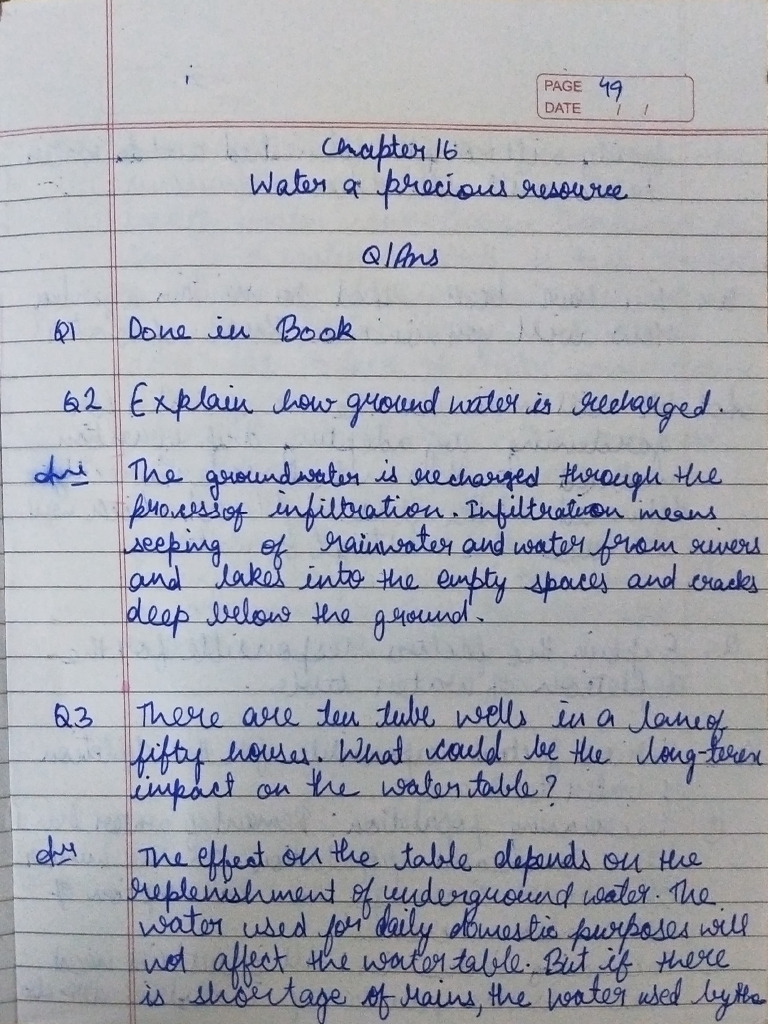 PAGE 49
DATE / /
Chapter 16
Water a precious resource
Q/Ans
Q1 Done in Book
Q2 Explain how ground water is recharged.
Ans The groundwater is recharged through the
process of infiltration. Infiltration means
seeping of rainwater and water from rivers
and lakes into the empty spaces and cracks
deep below the ground.
Q3 There are ten tube wells in a lane of
fifty houses. What could be the long-term
impact on the water table?
Ans The effect on the table depends on the
replenishment of underground water. The
water used for daily domestic purposes will
not affect the water table. But if there
is shortage of rains, the water used by the